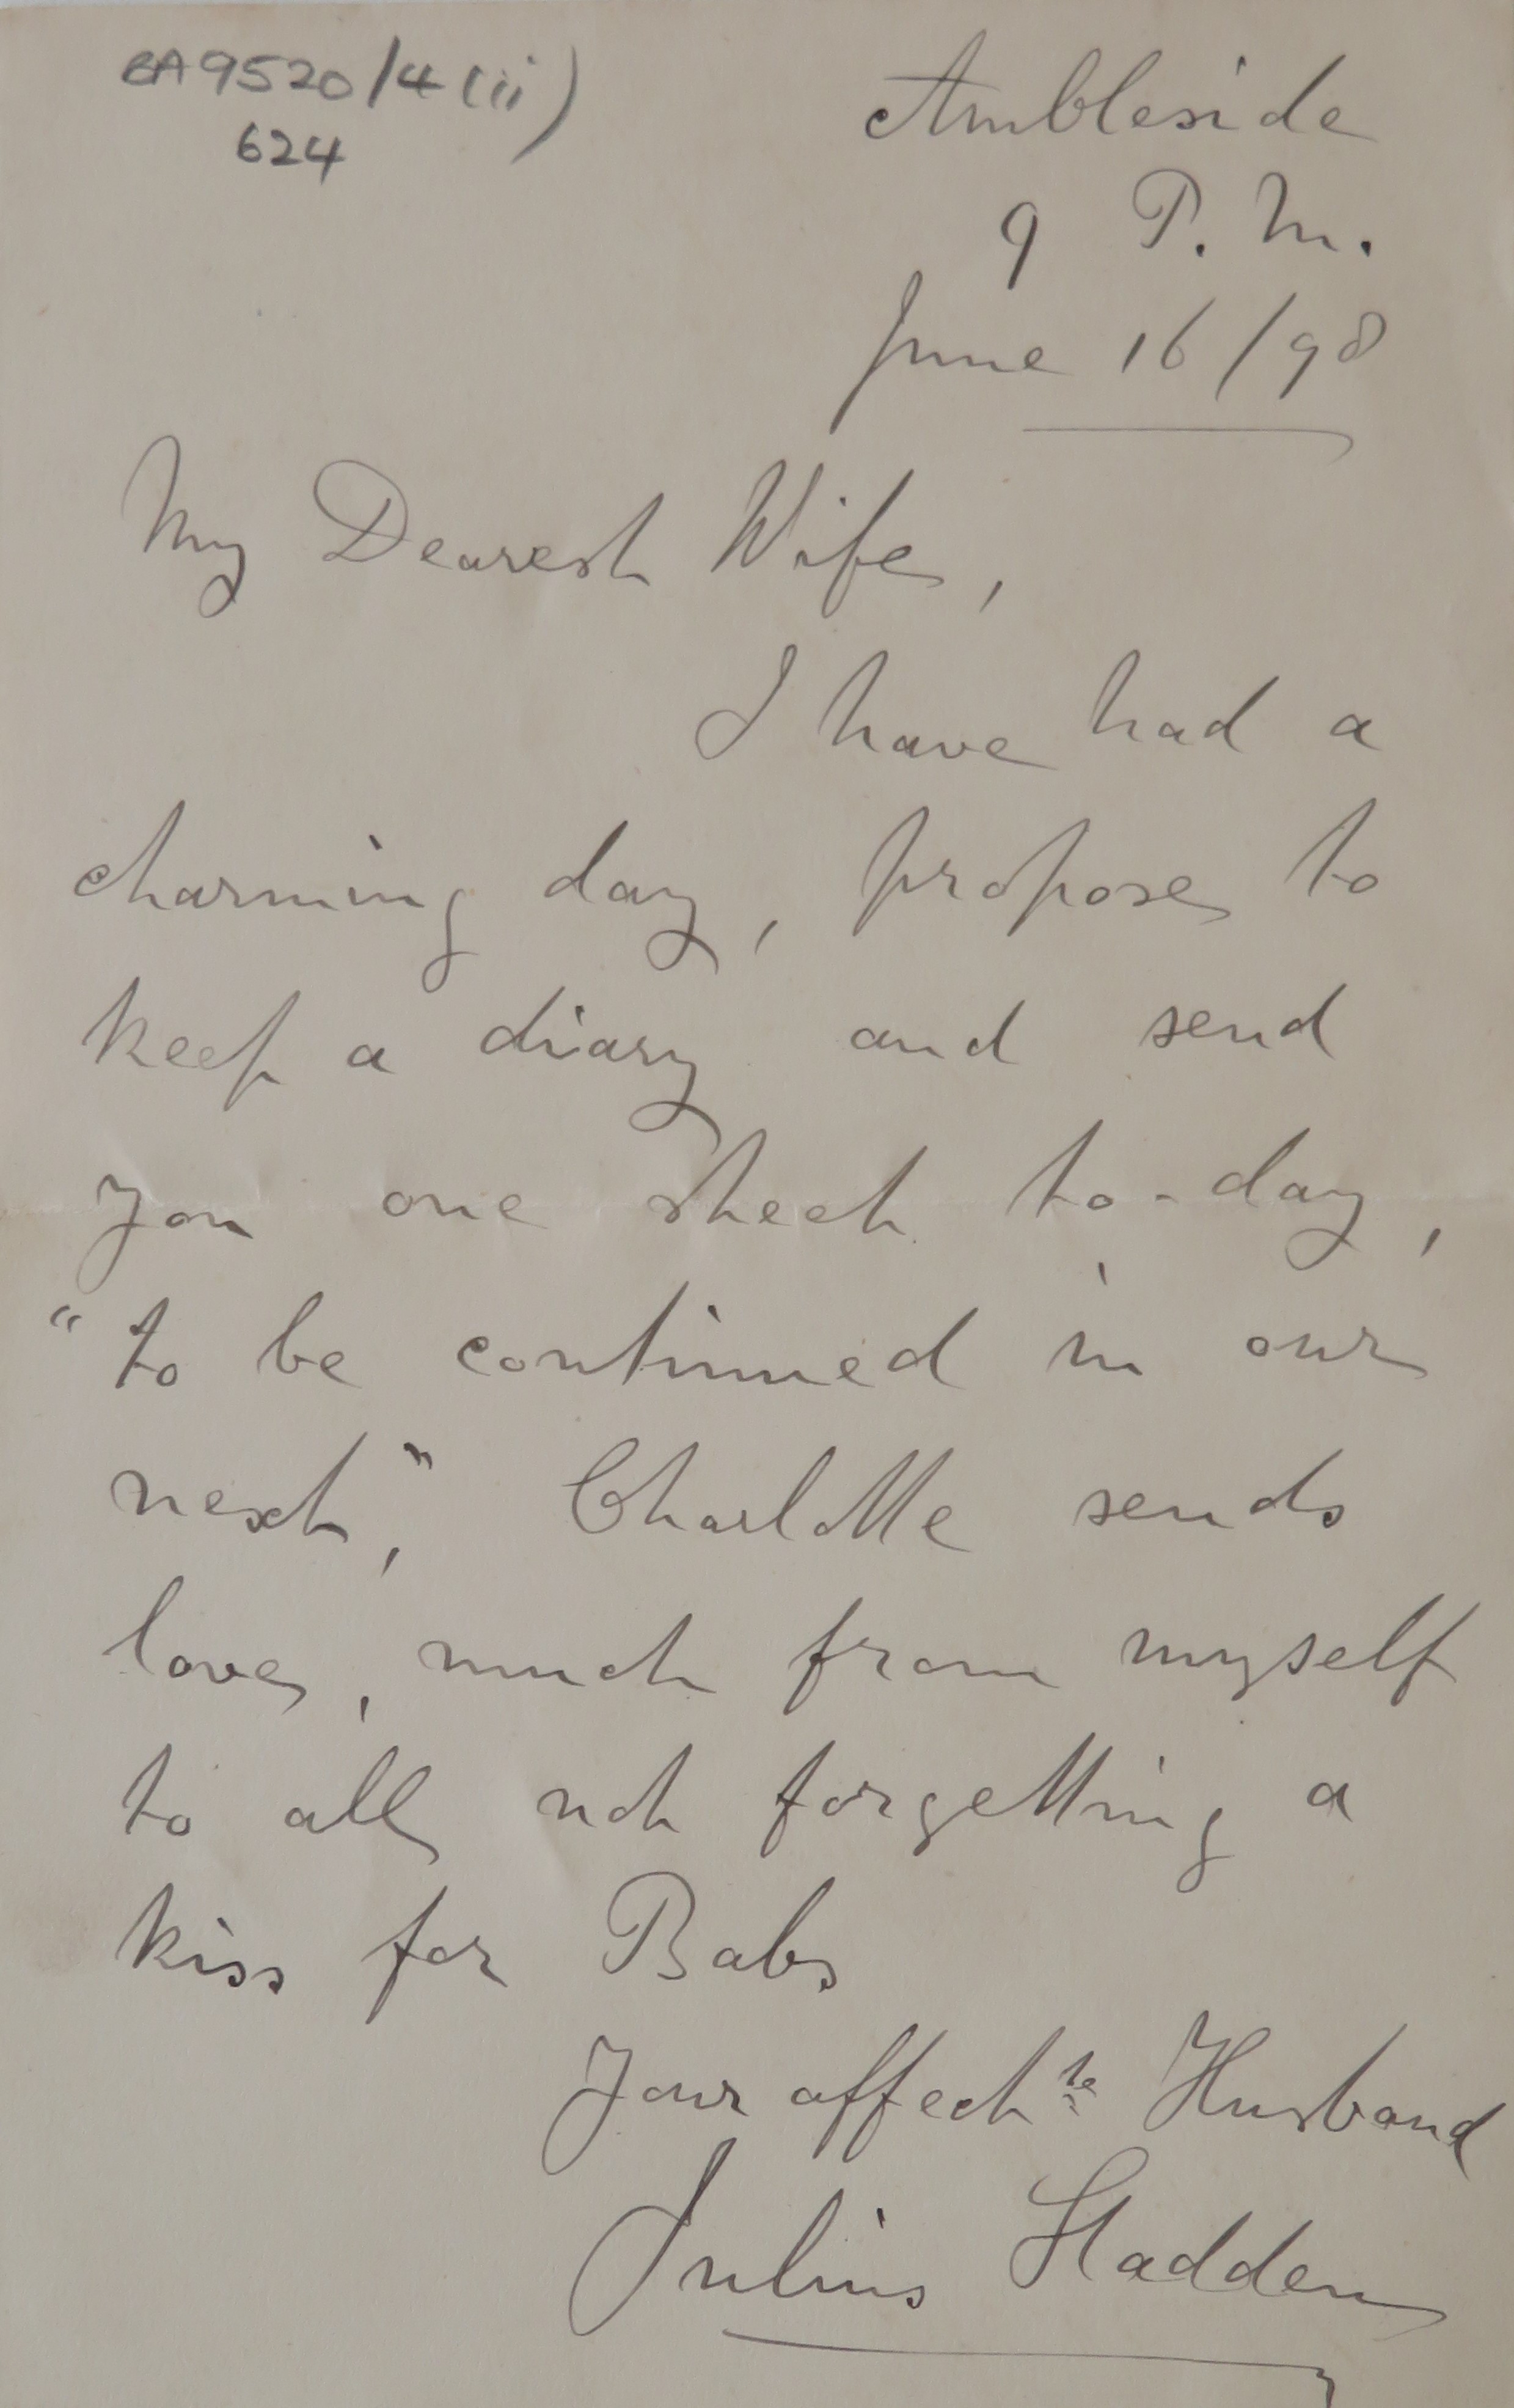 BA9520/4(ii)
624
Ambleside
9 P.M.
June 16/98
My Dearest Wife,
I have had a
charming day, propose to
keep a diary and send
you one sheet to-day,
"to be continued in our
next," Charlotte sends
love, much from myself
to all not forgetting a
kiss for Babs
Your affectte Husband
Julius Sladden